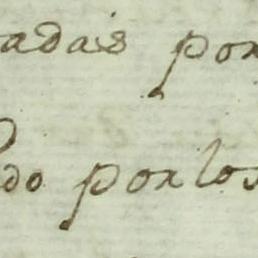 adais por
do por los